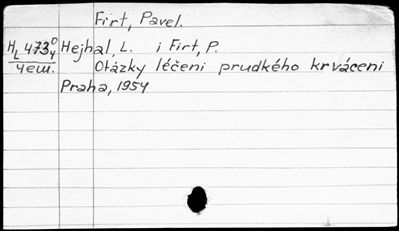 Firt, Pavel.
H 473 0/4 Hejhal, L. i Firt, P.
L
чеш. Otázky léčeni prudkého krváceni
Praha, 1954